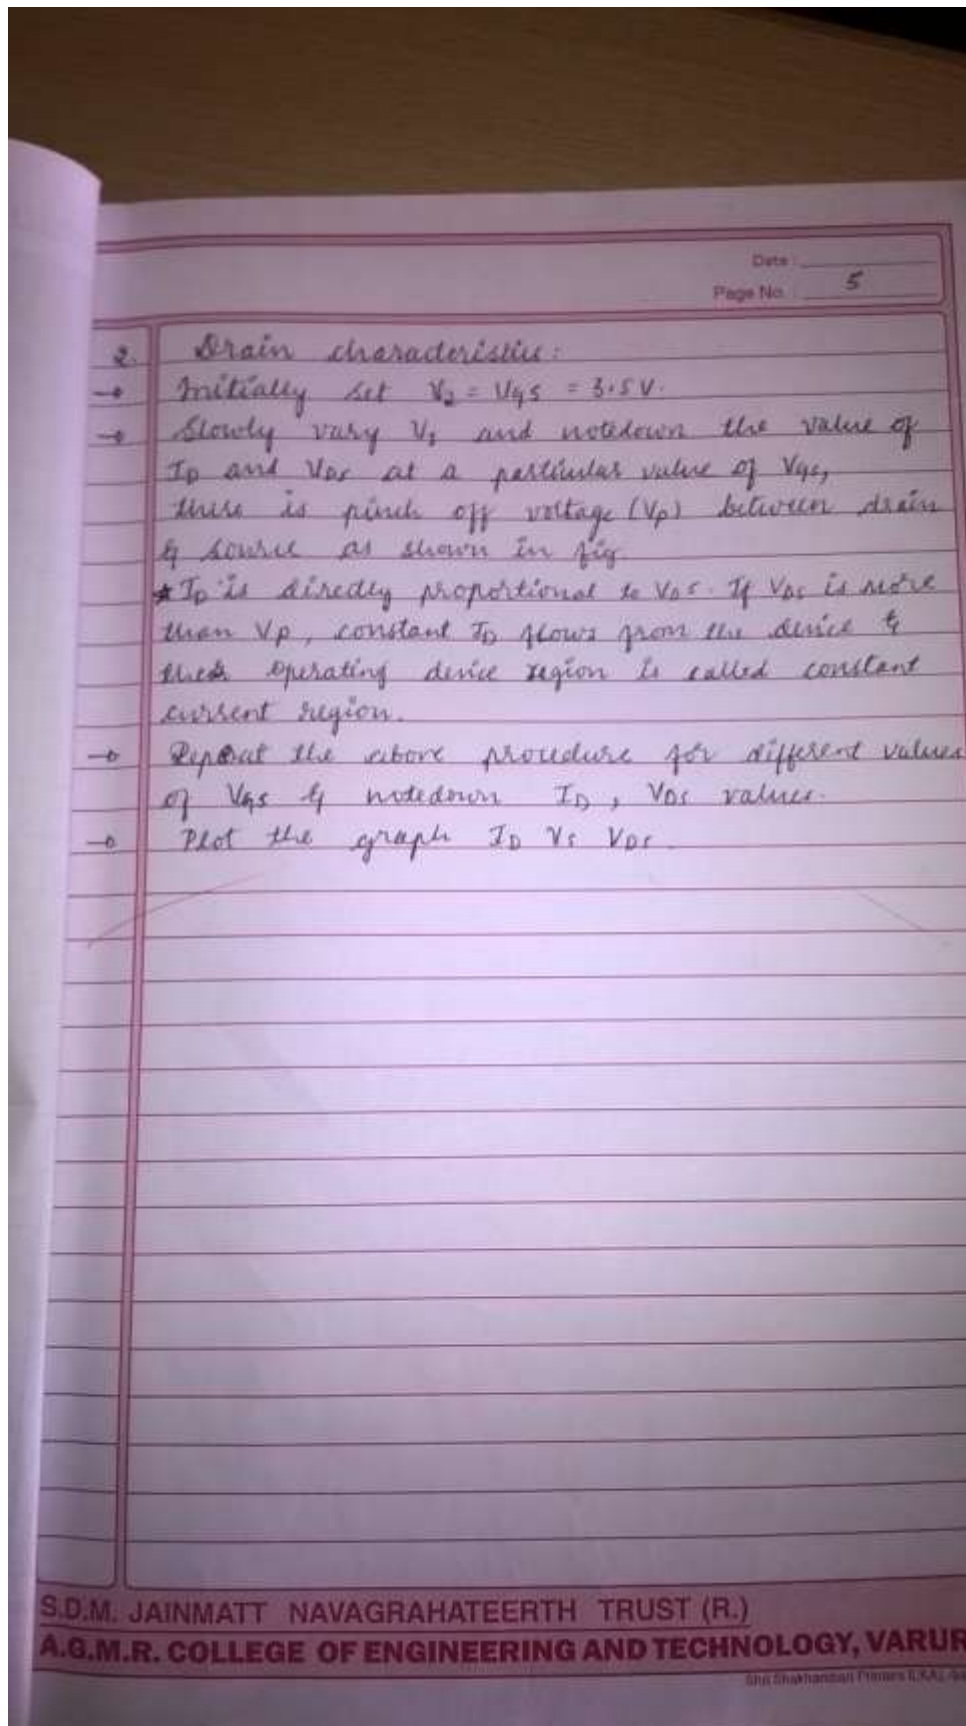 Date :
Page No. : 5
2. Drain characteristics:
→ Initially set V2 = VGS = 3.5V.
→ Slowly vary V1 and notedown the value of
ID and VDS at a particular value of VGS,
there is pinch off voltage (Vp) between drain
& source as shown in fig.
* ID is directly proportional to VDS. If VDS is more
than Vp, constant ID flows from the device &
the operating device region is called constant
current region.
→ Repeat the above procedure for different values
of VGS & notedown ID, VDS values.
→ Plot the graph ID Vs VDS.
S.D.M. JAINMATT NAVAGRAHATEERTH TRUST (R.)
A.G.M.R. COLLEGE OF ENGINEERING AND TECHNOLOGY, VARUR
Printers ILKAL